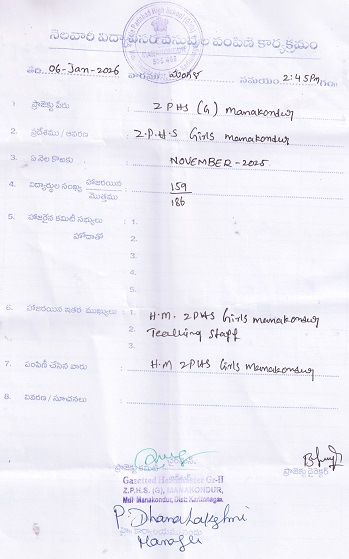 నెలవారి విద్యార్థినీ వస్తువుల పంపిణీ కార్యక్రమం
తేది. 06-Jan-2026 వారము మంగళ సమయం: 2:45 Pm గం
1. ప్రాజెక్టు పేరు : ZPHS (G) manakondur
2. ప్రదేశము / ఆవరణ : Z.P.H.S Girls manakondur
3. ఏ నెల కొఱకు : NOVEMBER - 2025
4. విద్యార్థుల సంఖ్య హాజరయిన : 159
మొత్తము 186
5. హాజరైన కమిటీ సభ్యులు : 1.
హోదాతో 2.
3.
4.
5.
6. హాజరయిన ఇతర ముఖ్యులు : 1. H.M. ZPHS Girls manakondur
2. Teaching staff
3.
7. పంపిణీ చేసిన వారు : H.M ZPHS Girls Manakondur
8. వివరణ / సూచనలు :
ప్రాజెక్టు డైరెక్టర్
Gazetted Headmaster Gr-II
Z.P.H.S. (G), MANAKONDUR,
Mdl: Manakondur, Dist: Karimnagar.
P. Dhanalakshmi
Manager